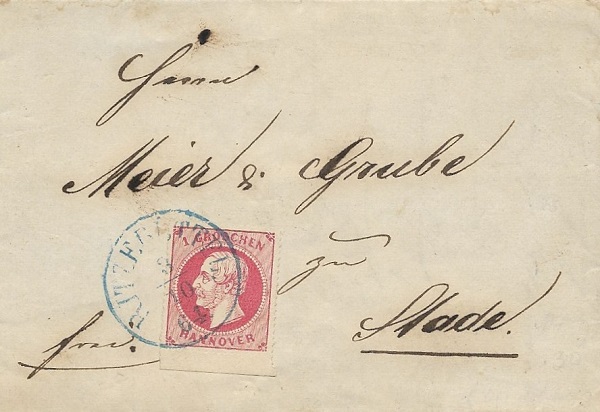 Herrn
Meier & Grube
zu
Stade.
frco.
RITZEBÜTTEL
1 GROSCHEN
HANNOVER